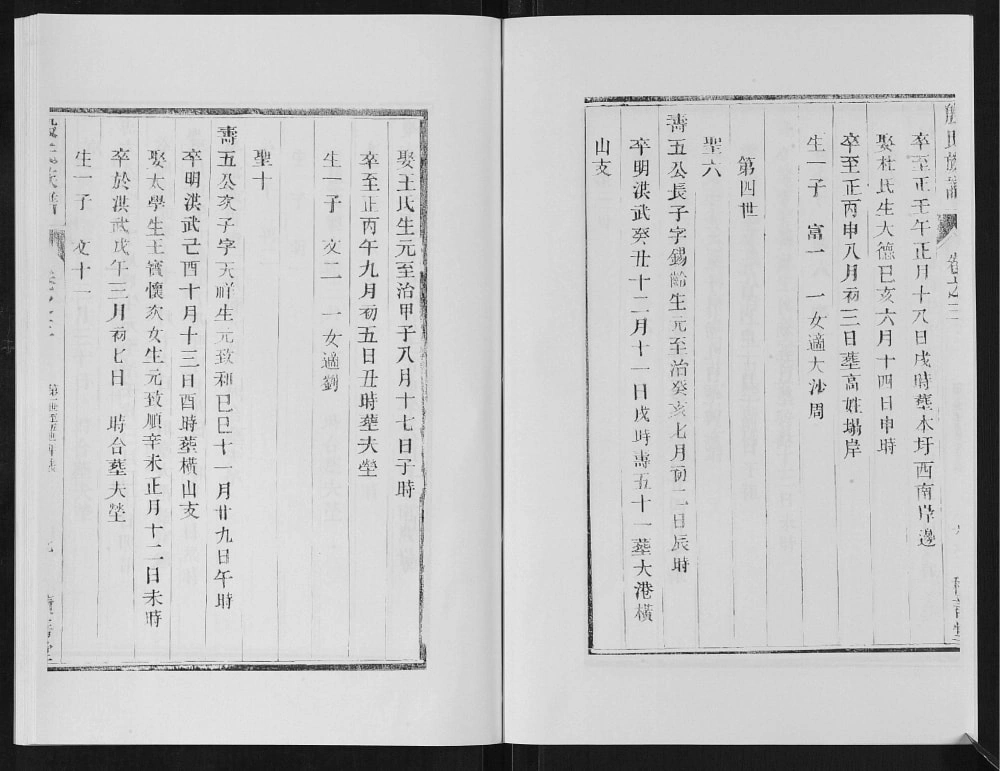 卒至正王午正月十八日戌時塟本圩西南岸邊
娶杜氏生大德巳亥六月十四日申時
卒至正丙申八月初三日塟高姓塌岸
生一子　富一　一女適大沙周
第四世
聖六
壽五公長子字錫齡生元至治癸亥七月初二日辰時
卒明洪武癸丑十二月十一日戌時壽五十一塟大港橫
山支
娶王氏生元至治甲子八月十七日子時
卒至正丙午九月初五日丑時塟夫塋
生一子　文二　一女適劉
聖十
壽五公次子字天祥生元致和巳巳十一月廿九日午時
卒明洪武己酉十月十三日酉時塟橫山支
娶太學生王實懷次女生元致順辛未正月十二日未時
卒於洪武戊午三月初七日　時合塟夫塋
生一子　文十一